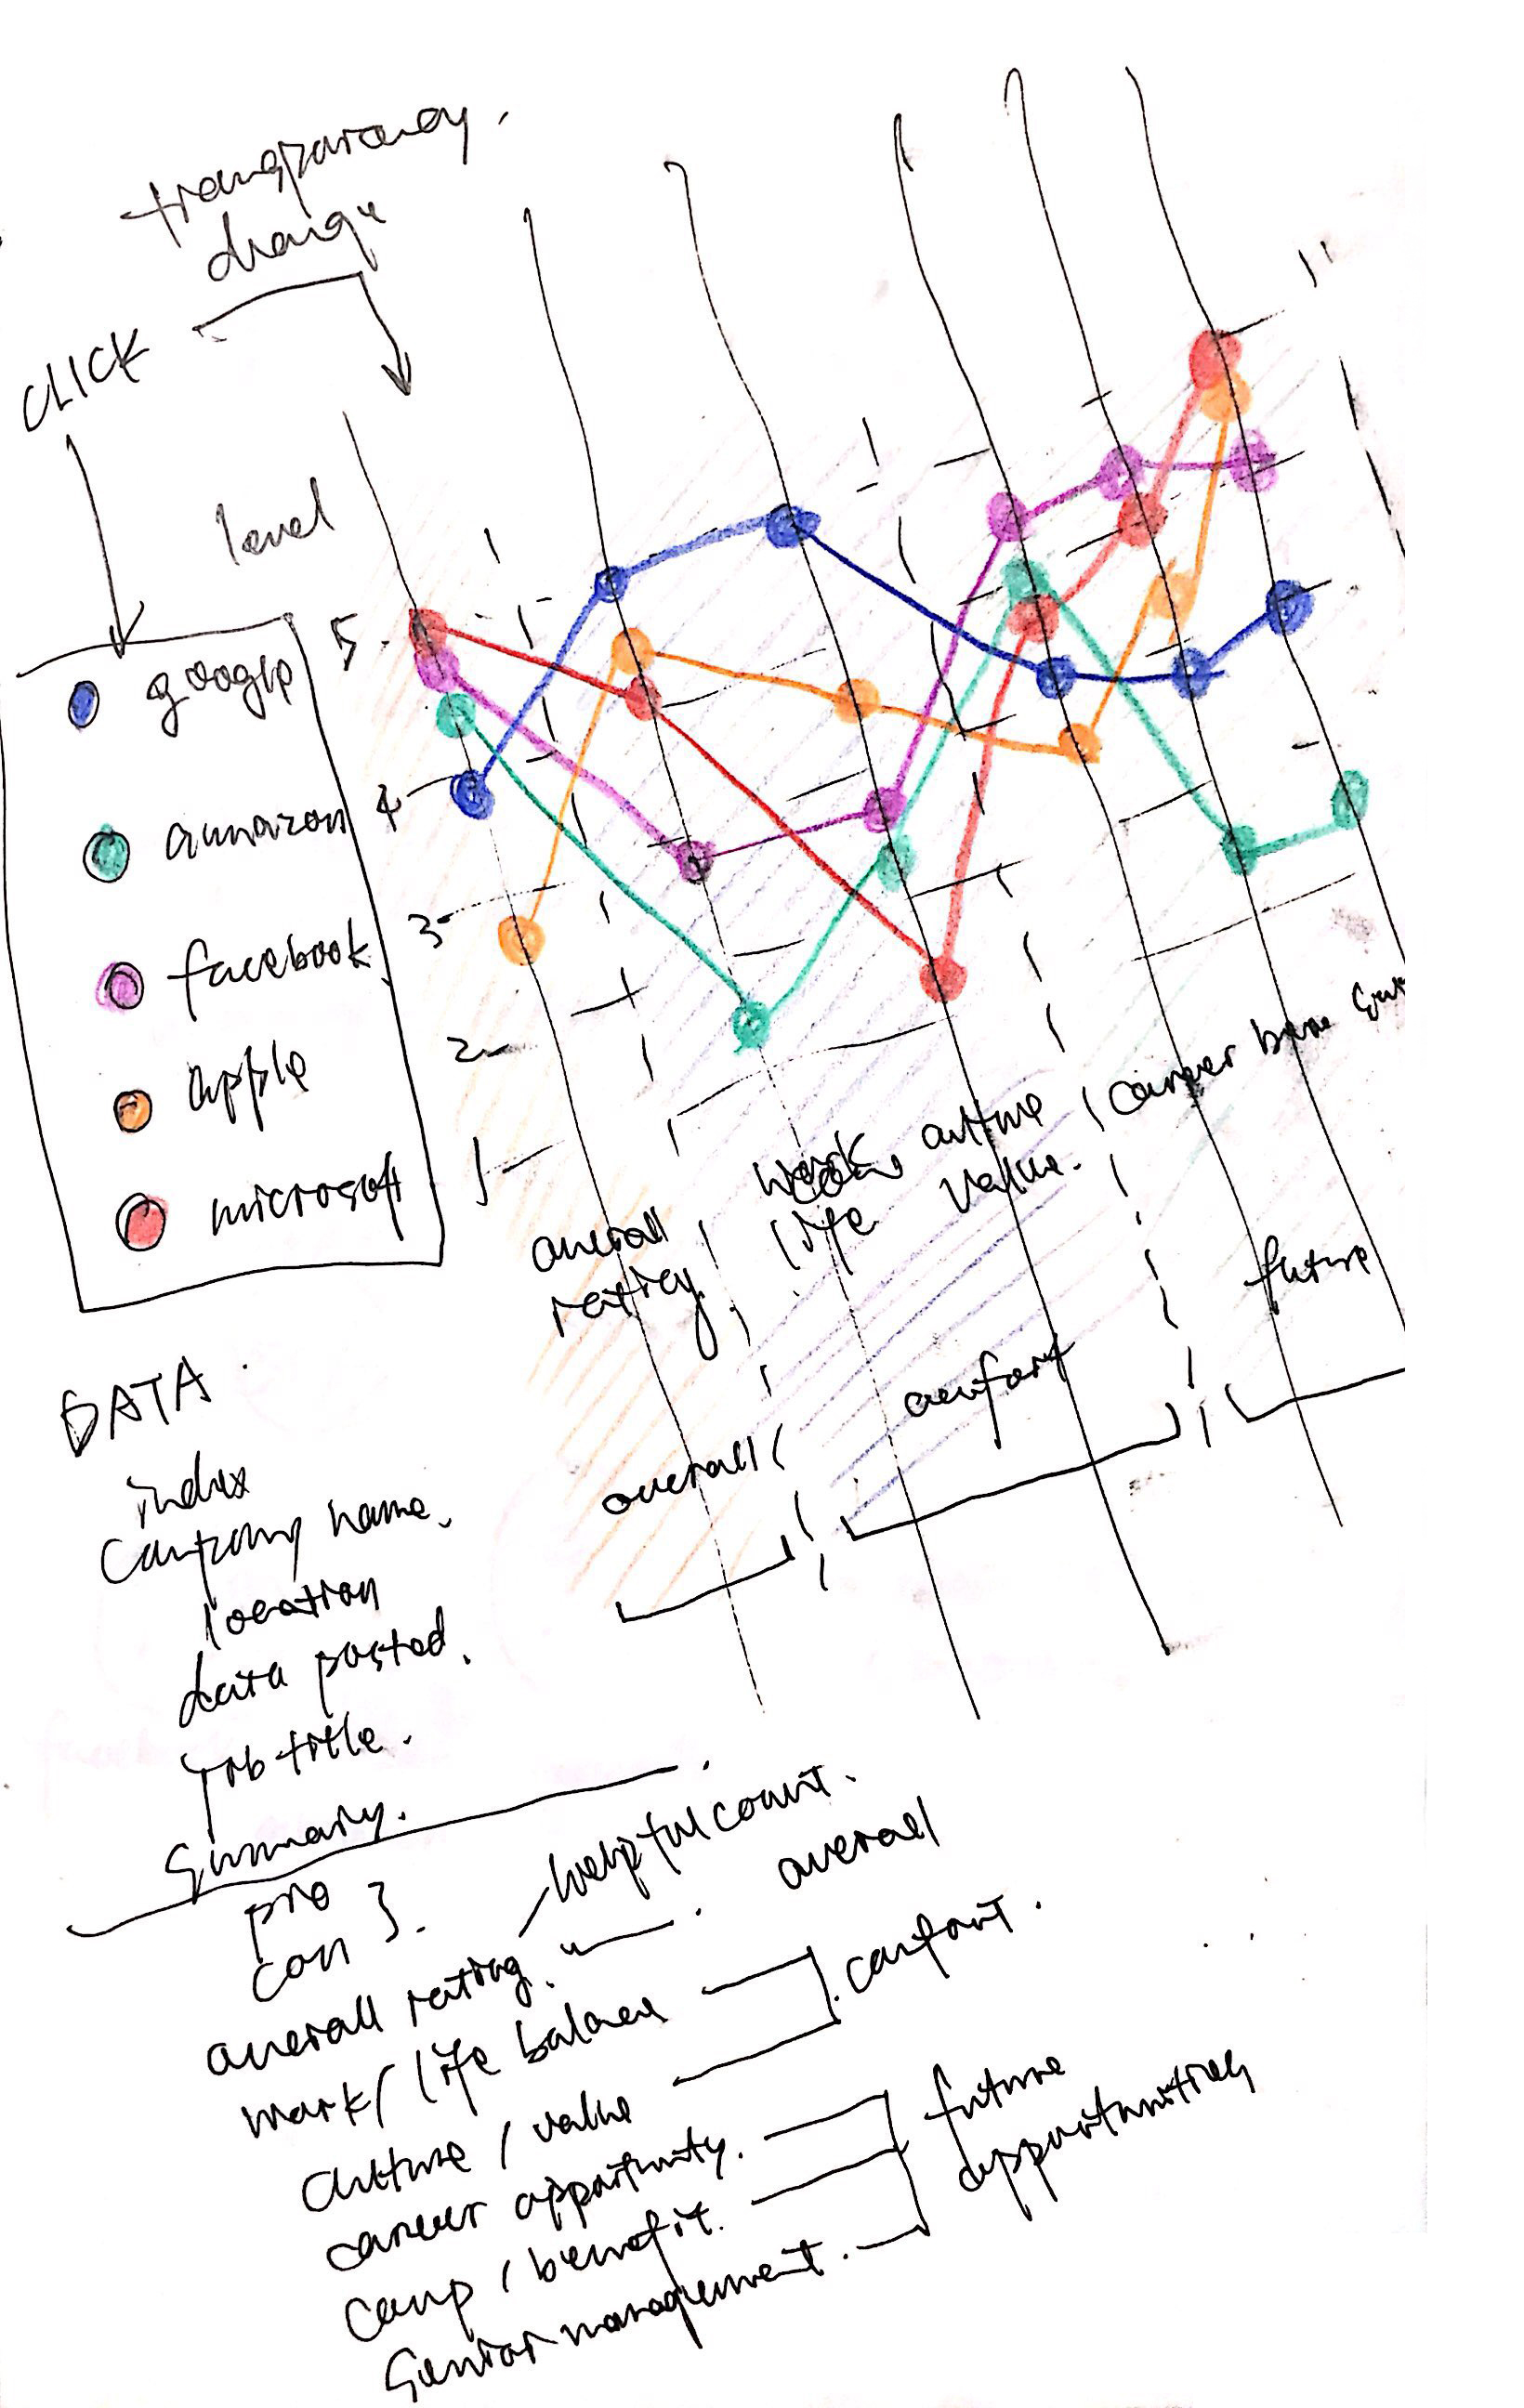 transparency.
change
CLICK
level
google
amazon
facebook
apple
microsoft
5
4
3
2
1
overall
rating
work
life
culture
value.
career
future
overall
comfort
DATA
index
Company name.
location
data posted.
job title.
Summary.
pro
con }.
helpful count.
overall rating.
overall
work / life balance
comfort.
culture / value
career opportunity.
comp / benefit.
Senior management.
future
opportunities